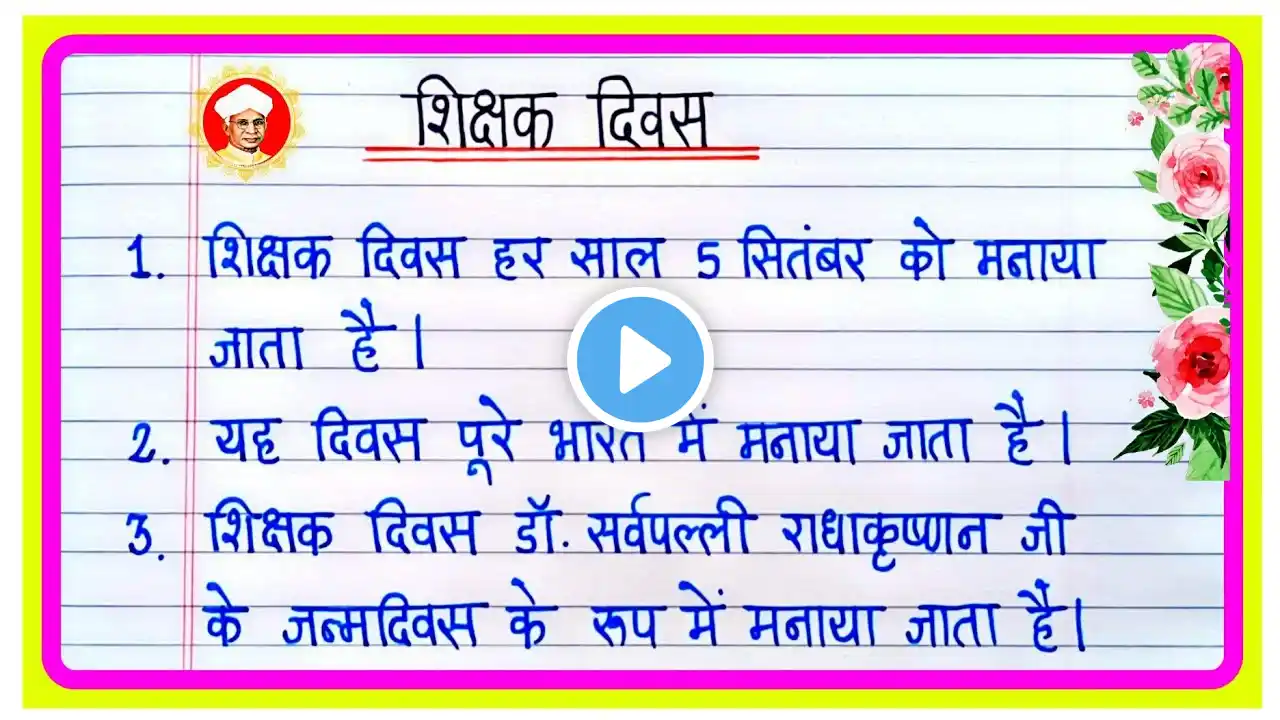 शिक्षक दिवस
1. शिक्षक दिवस हर साल 5 सितंबर को मनाया
जाता है।
2. यह दिवस पूरे भारत में मनाया जाता है।
3. शिक्षक दिवस डॉ. सर्वपल्ली राधाकृष्णन जी
के जन्मदिवस के रूप में मनाया जाता है।